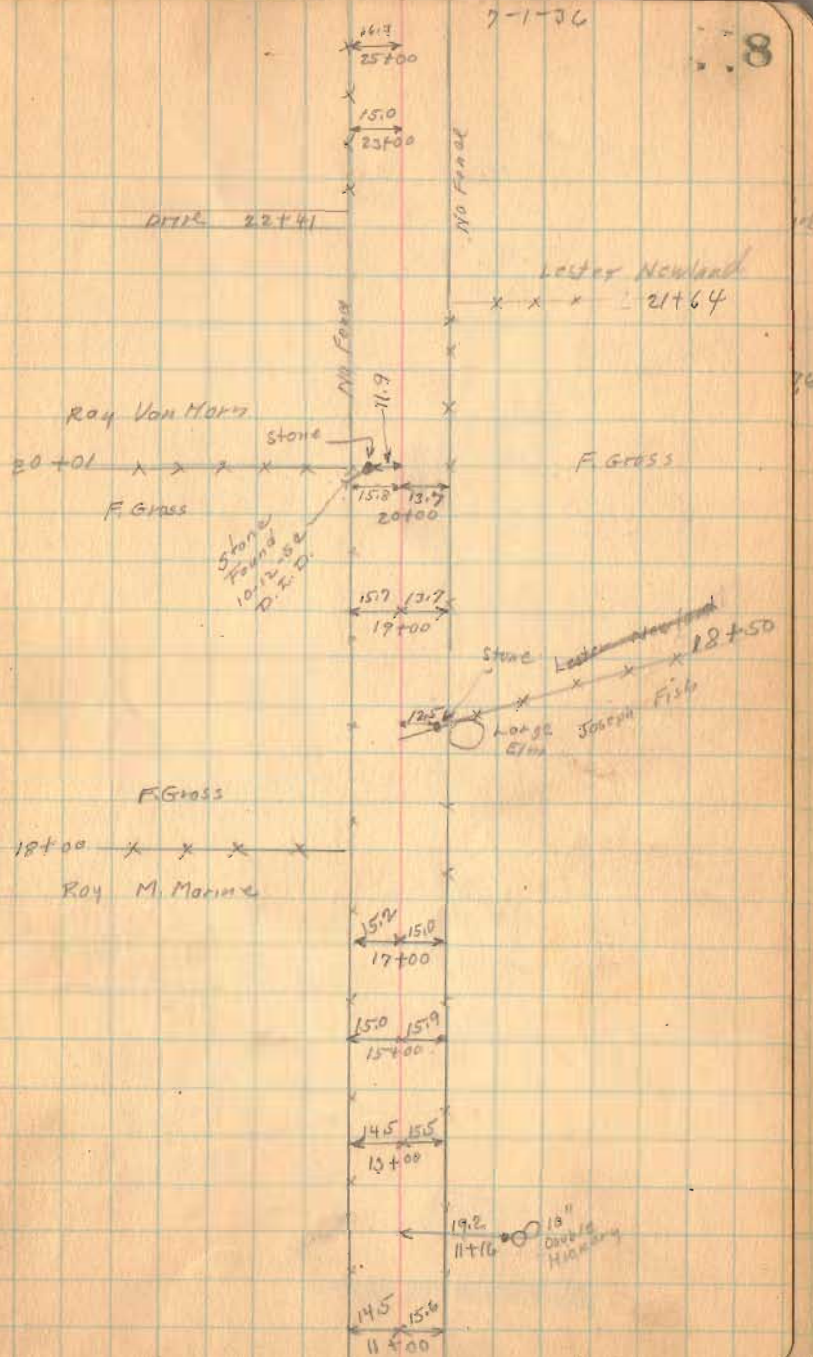 7-1-36
8
16.3
25+00
15.0
23+00
No Fence
Drive 22+41
Lester Newland
21+64
No Fence
11.9
Ray Van Horn
Stone
20+01
F. Gross
F. Gross
15.8 13.7
20+00
Stone
Found
10-12-52
15.7 13.7
19+00
Stone
Lester Newland
18+50
12.5
Large
Elm
Joseph Fish
F. Gross
18+00
Roy M. Marine
15.2 15.0
17+00
15.0 15.9
15+00
14.5 15.5
13+00
19.2
11+16
18"
Double
Hickory
14.5 15.6
11+00